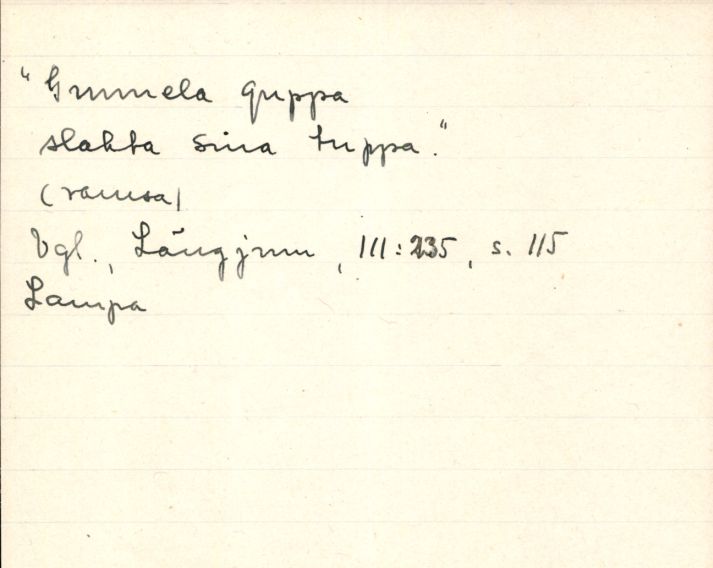 "Gummela guppa
slakta sina tuppa."
(ramsa)
Vgl., Långjum, III:235, s. 115
Lampa